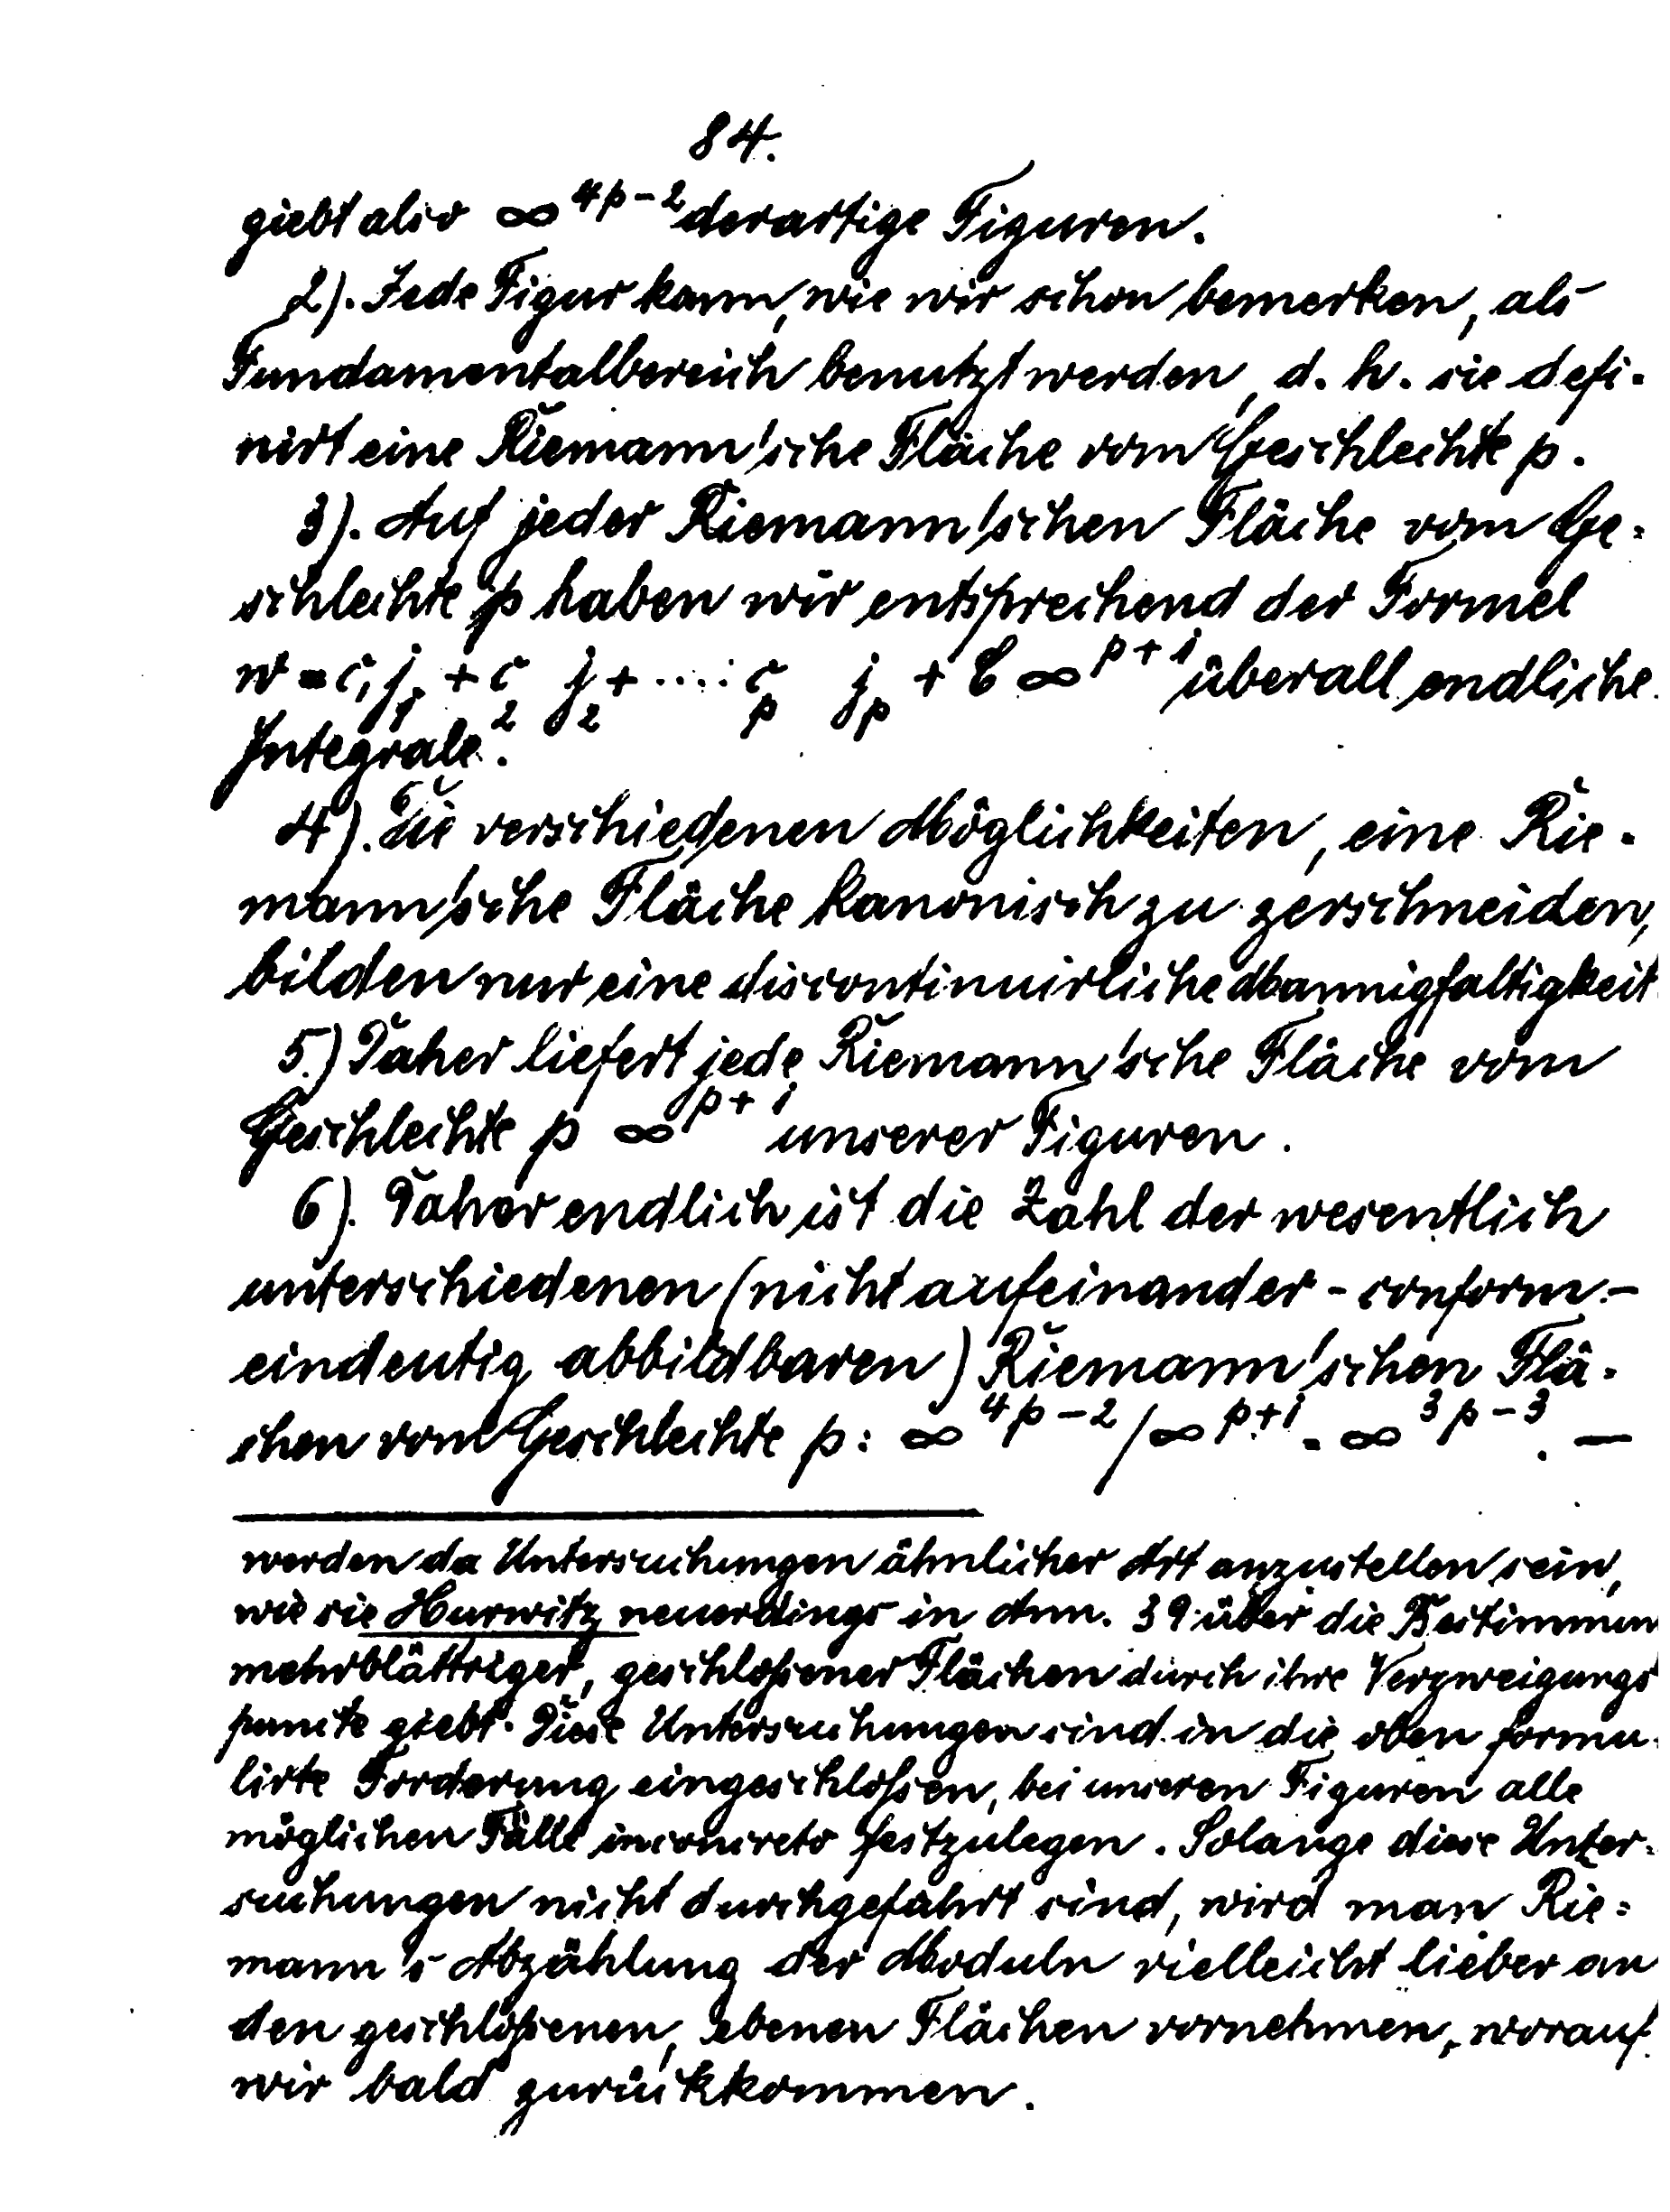 84.
giebt also ∞^{4p-2} derartige Figuren.
2). Jede Figur kann, wie wir schon bemerken, als
Fundamentalbereich benutzt werden, d. h. sie defi-
nirt eine Riemann'sche Fläche vom Geschlechte p.
3). Auf jeder Riemann'schen Fläche vom Ge-
schlechte p haben wir entsprechend der Formel
w = c_1 j_1 + c_2 j_2 + ..... c_p j_p + C ∞^{p+1} überall endliche
Integrale.
4). Die verschiedenen Möglichkeiten, eine Rie-
mann'sche Fläche kanonisch zu zerschneiden,
bilden nur eine discontinuirliche Mannigfaltigkeit
5.) Daher liefert jede Riemann'sche Fläche vom
Geschlechte p ∞^{p+1} unserer Figuren.
6). Daher endlich ist die Zahl der wesentlich
unterschiedenen (nicht aufeinander - conform -
eindeutig abbildbaren) Riemann'schen Flä-
chen vom Geschlechte p: ∞^{4p-2} / ∞^{p+1} = ∞^{3p-3}. —
werden da Untersuchungen ähnlicher Art anzustellen sein,
wie sie Hurwitz neuerdings in Ann. 39 über die Bestimmun
mehrblättriger, geschloßener Flächen durch ihre Verzweigungs
puncte giebt. Diese Untersuchungen sind in die oben formu-
lirte Forderung eingeschloßen, bei unseren Figuren alle
möglichen Fälle in concreto festzulegen. Solange diese Unter-
suchungen nicht durchgeführt sind, wird man Rie-
mann's Abzählung der Moduln vielleicht lieber an
den geschloßenen, ebenen Flächen vornehmen, worauf
wir bald zurückkommen.